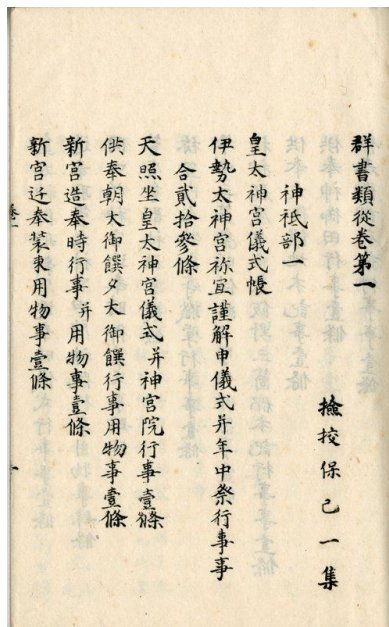 群書類従巻第一
撿挍保己一集
神祇部一
皇太神宮儀式帳
伊勢太神宮祢宜謹解申儀式并年中祭行事事
合貳拾參條
天照坐皇太神宮儀式并神宮院行事壹條
供奉朝大御饌夕大御饌行事用物事壹條
新宮造奉時行事并用物事壹條
新宮迁奉装束用物事壹條